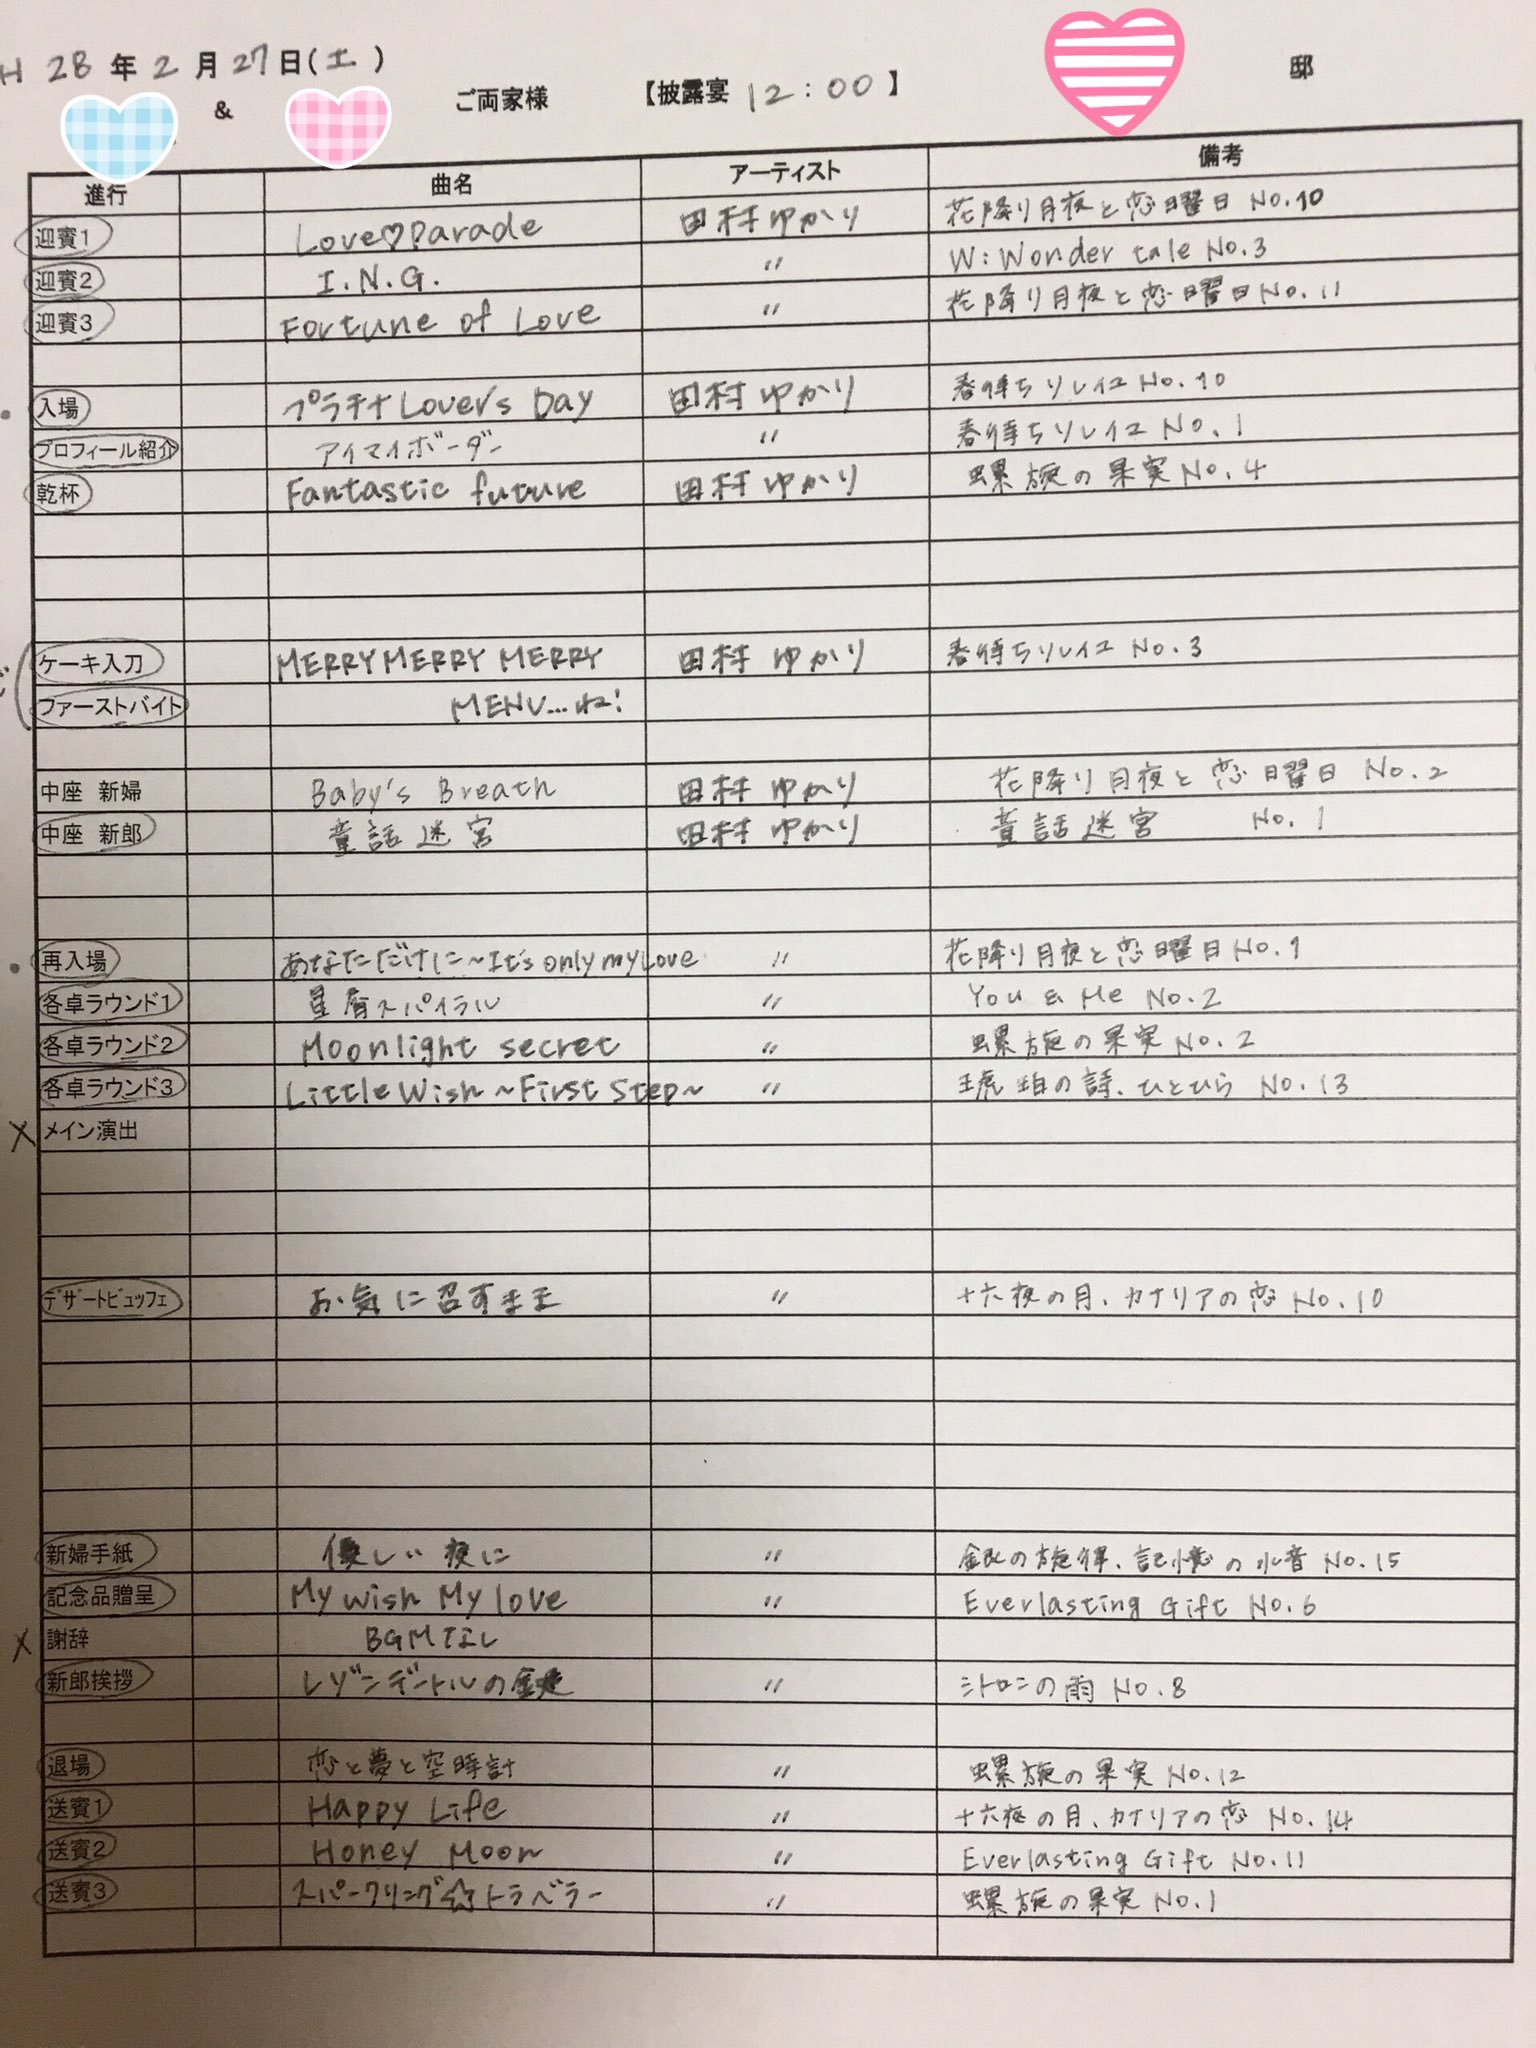 H 28年2月27日(土)
& ご両家様 【披露宴 12:00】 邸
進行 曲名 アーティスト 備考
迎賓1 Love♡Parade 田村ゆかり 花降り月夜と恋曜日 No.10
迎賓2 I.N.G. 〃 W:Wonder tale No.3
迎賓3 Fortune of Love 〃 花降り月夜と恋曜日 No.11
入場 プラチナLover's Day 田村ゆかり 春待ちソレイユ No.10
プロフィール紹介 アイマイボーダー 〃 春待ちソレイユ No.1
乾杯 Fantastic future 田村ゆかり 螺旋の果実 No.4
ケーキ入刀 MERRY MERRY MERRY 田村ゆかり 春待ちソレイユ No.3
ファーストバイト MENU...ね!
中座 新婦 Baby's Breath 田村ゆかり 花降り月夜と恋曜日 No.2
中座 新郎 童話迷宮 田村ゆかり 童話迷宮 No.1
再入場 あなただけに~It's only my Love 〃 花降り月夜と恋曜日 No.1
各卓ラウンド1 星屑スパイラル 〃 You & Me No.2
各卓ラウンド2 Moonlight secret 〃 螺旋の果実 No.2
各卓ラウンド3 Little Wish ~First Step~ 〃 琥珀の詩、ひとひら No.13
× メイン演出
デザートビュッフェ お気に召すまま 〃 十六夜の月、カナリアの恋 No.10
新婦手紙 優しい夜に 〃 銀の旋律、記憶の水音 No.15
記念品贈呈 My wish My love 〃 Everlasting Gift No.6
× 謝辞 BGMなし
新郎挨拶 レゾンデートルの鍵 〃 シトロンの雨 No.8
退場 恋と夢と空時計 〃 螺旋の果実 No.12
送賓1 Happy Life 〃 十六夜の月、カナリアの恋 No.14
送賓2 Honey Moon 〃 Everlasting Gift No.11
送賓3 スパークリング☆トラベラー 〃 螺旋の果実 No.1